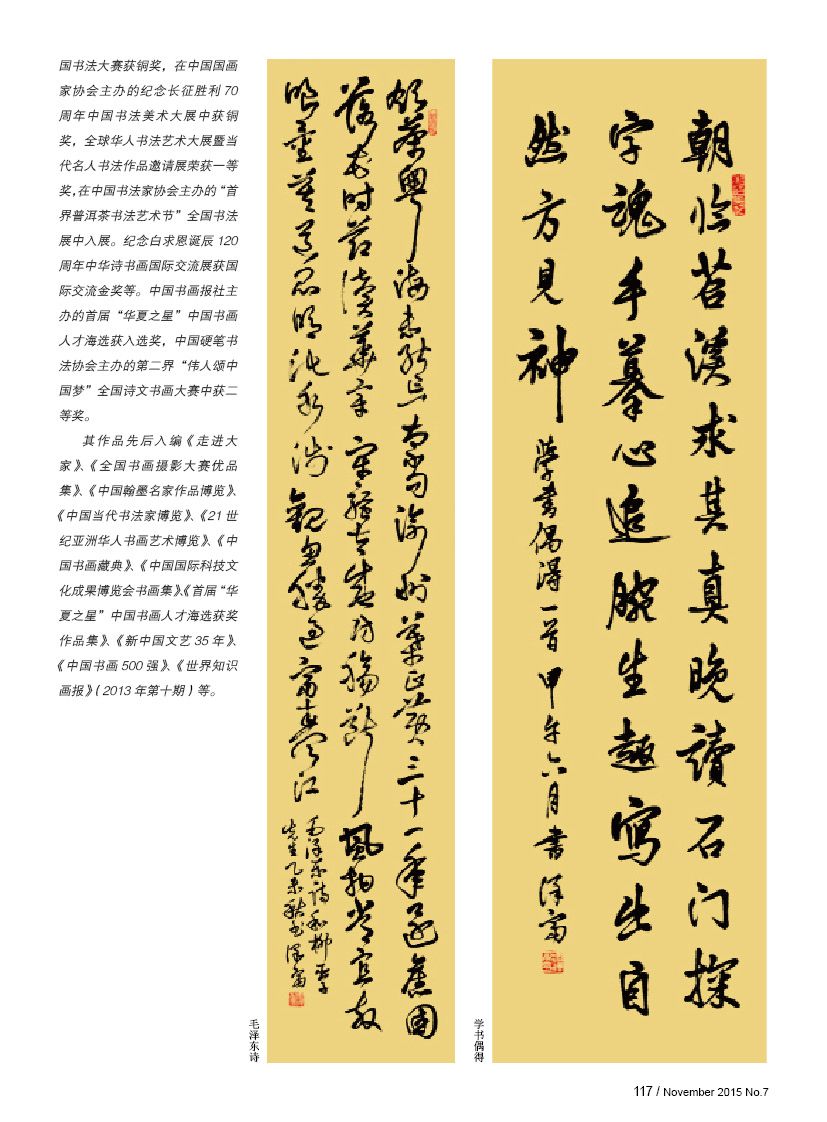 国书法大赛获铜奖，在中国国画
家协会主办的纪念长征胜利 70
周年中国书法美术大展中获铜
奖，全球华人书法艺术大展暨当
代名人书法作品邀请展荣获一等
奖，在中国书法家协会主办的“首
界普洱茶书法艺术节”全国书法
展中入展。纪念白求恩诞辰 120
周年中华诗书画国际交流展获国
际交流金奖等。中国书画报社主
办的首届“华夏之星”中国书画
人才海选获入选奖，中国硬笔书
法协会主办的第二界“伟人颂中
国梦”全国诗文书画大赛中获二
等奖。
其作品先后入编《走进大
家》、《全国书画摄影大赛优品
集》、《中国翰墨名家作品博览》、
《中国当代书法家博览》、《21 世
纪亚洲华人书画艺术博览》、《中
国书画藏典》、《中国国际科技文
化成果博览会书画集》《首届“华
夏之星”中国书画人才海选获奖
作品集》、《新中国文艺 35 年》、
《中国书画 500 强》、《世界知识
画报》（2013 年第十期）等。
飲茶粵海未能忘索句渝州葉正黃三十一年還舊國
落花时节讀華章牢騷太盛防腸斷風物長宜放
眼量莫道昆明池水淺觀魚勝過富春江
毛泽东诗和柳亚子
先生乙未秋书泽富
毛泽东诗
朝临苕溪求其真晚讀石门探
字魂手摹心追腕生趣寫出自
然方見神
學書偶得一首甲午六月書泽富
学书偶得
117 / November 2015 No.7